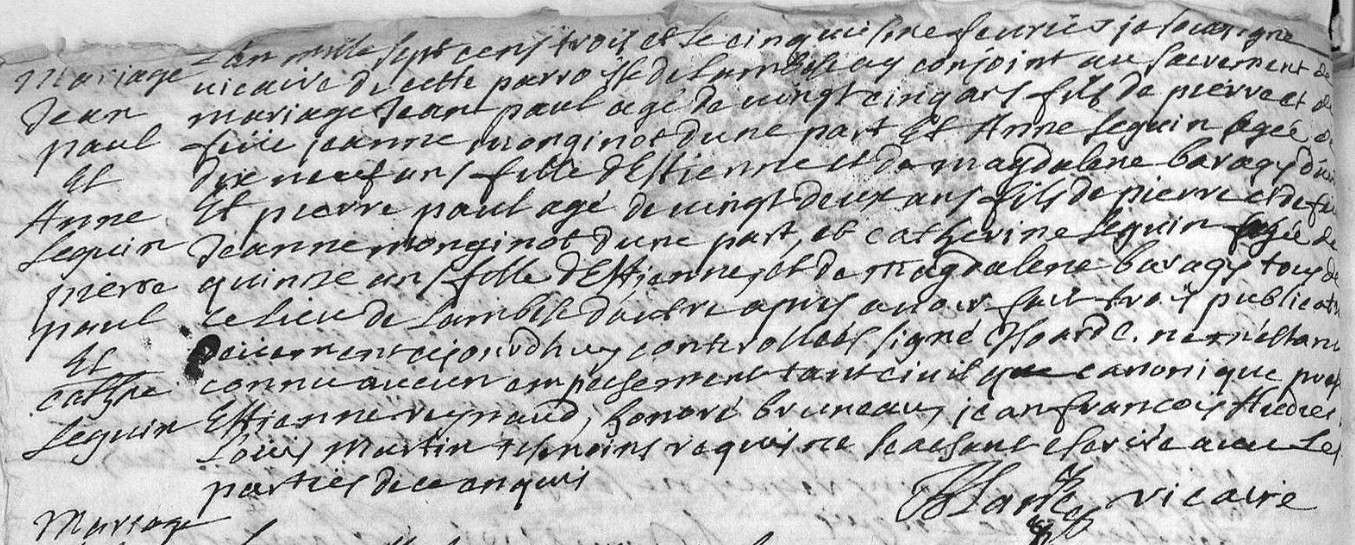 Mariage
Jean
paul
Et
Anne
Seguin
pierre
paul
Et
Seguin
L'an mille sept cens trois et le cinquiesme feurier je soussigne
vicaire de cette parroisse de Lambesc ay conjoint au sacrement de
mariage Jean paul agé de vingt cinq ans fils de pierre et de
feüe jeanne monginot d'une part Et Anne Seguin agée de
dix neuf ans fille d'Estienne et de magdalene baragy
Et pierre paul agé de vingt deux ans fils de pierre et de
Jeanne monginot d'une part, et catherine Seguin agée de
quinse ans fille d'Estienne, et de magdalene baragy tous de
ce lieu de Lambesc d'autre apres avoir fait trois
cejourdhuy controllées signé
connu aucun empechement tant civil que canonique
Estienne reynaud, honoré bruneau, jean françois
Louis Martin temoins requis ne sachant escrire avec Les
parties de ce enquis
vicaire
Mariage